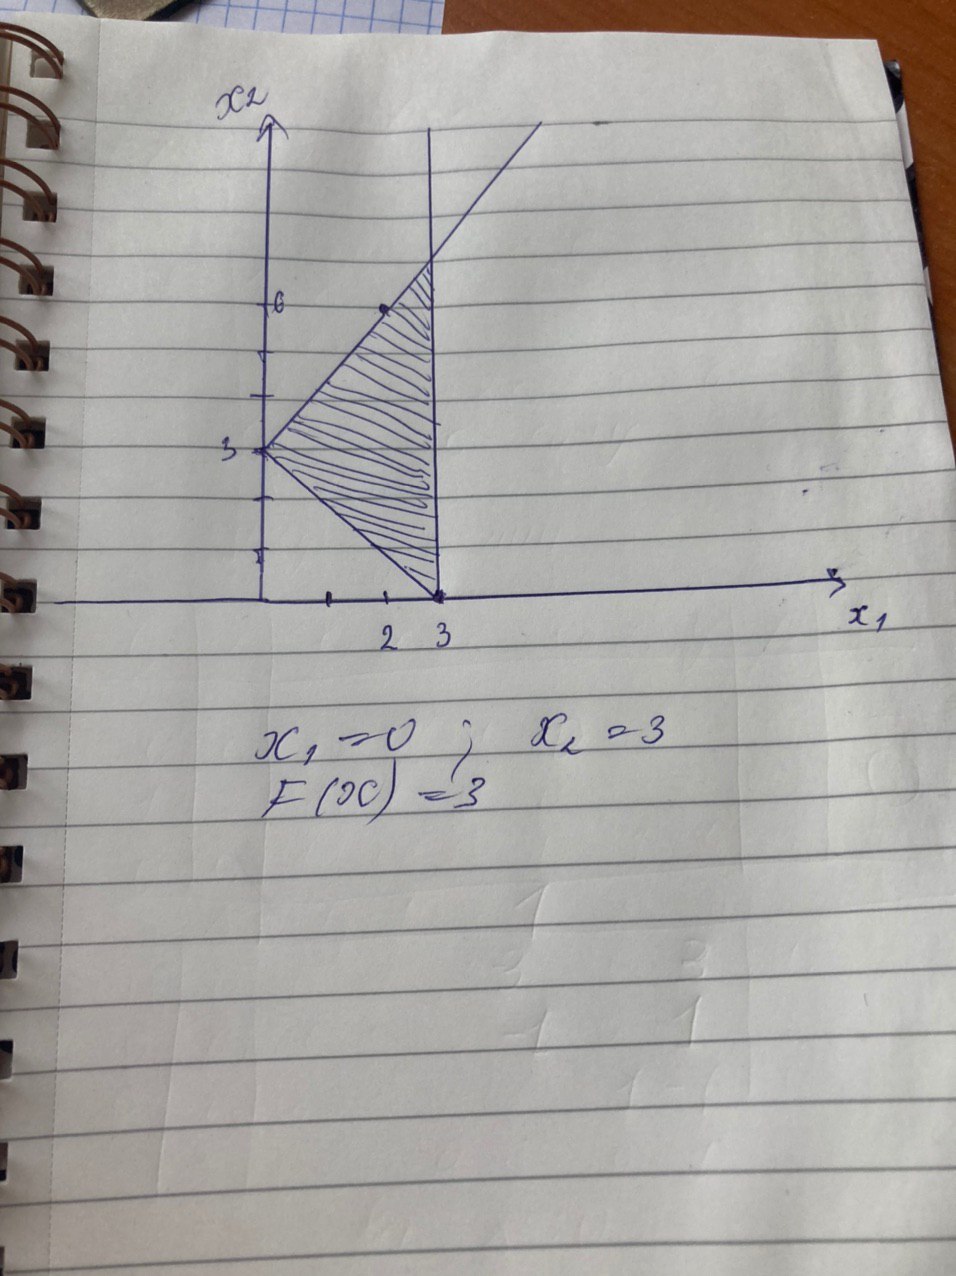 x2
6
3
2 3
x₁
x₁ = 0 ; x₂ = 3
F(x) = 3